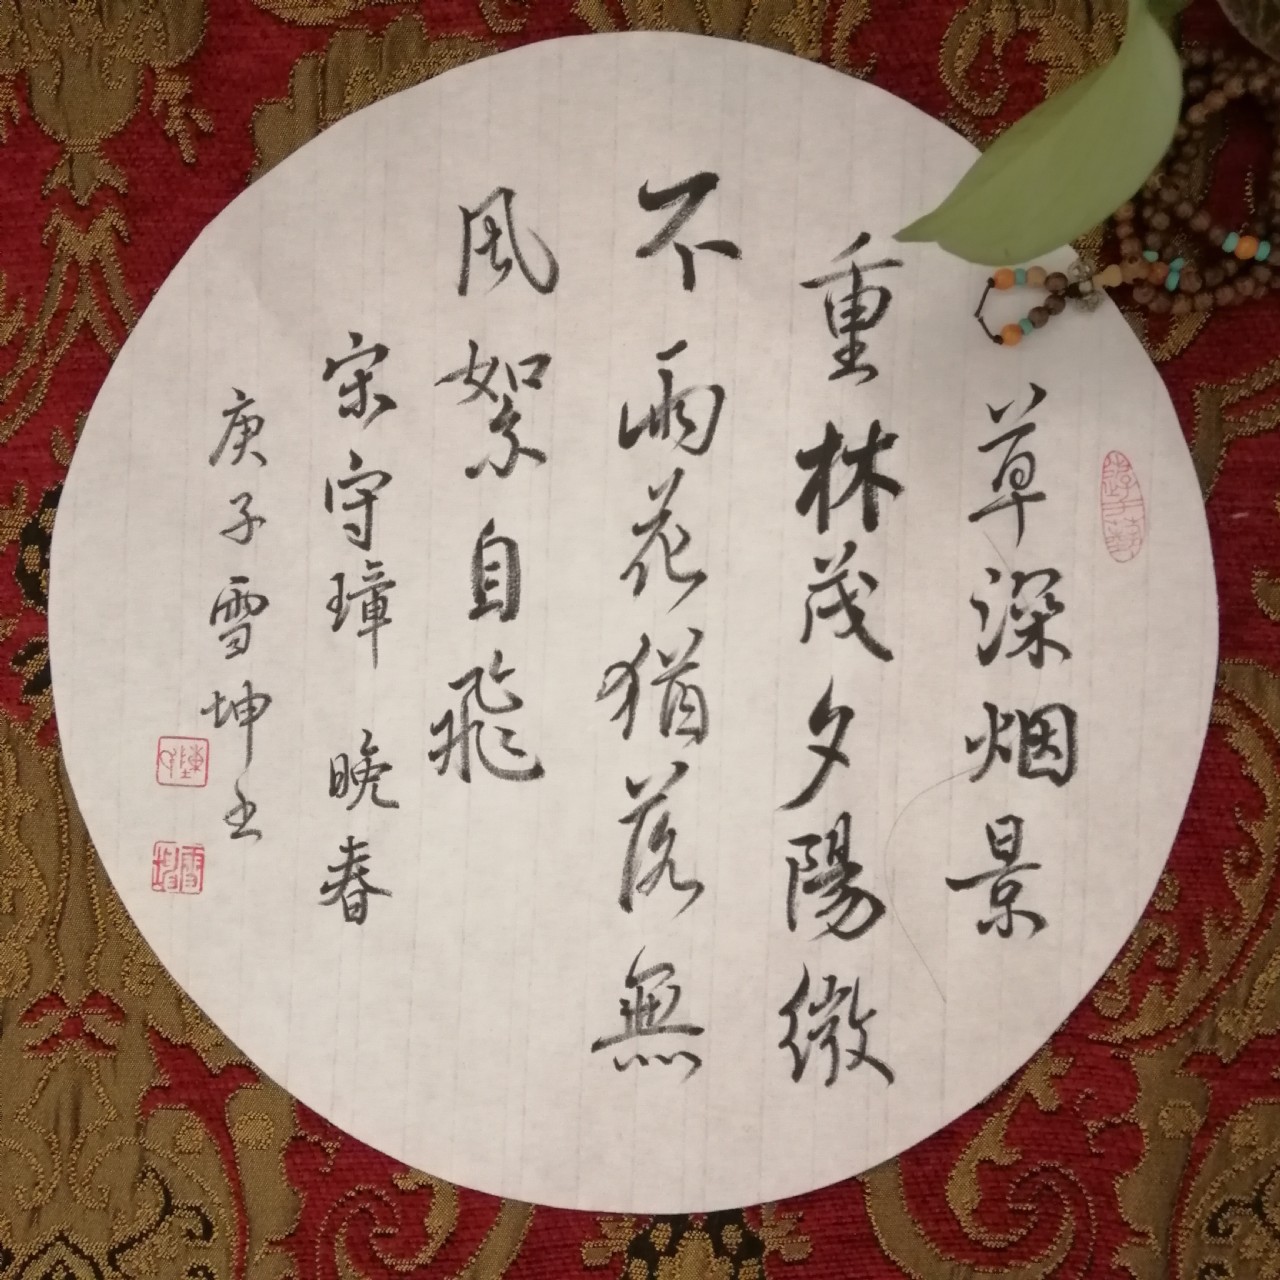 游于藝
草深烟景
重林茂夕陽微
不雨花猶落無
風絮自飛
宋守璋 晚春
庚子雪坤書